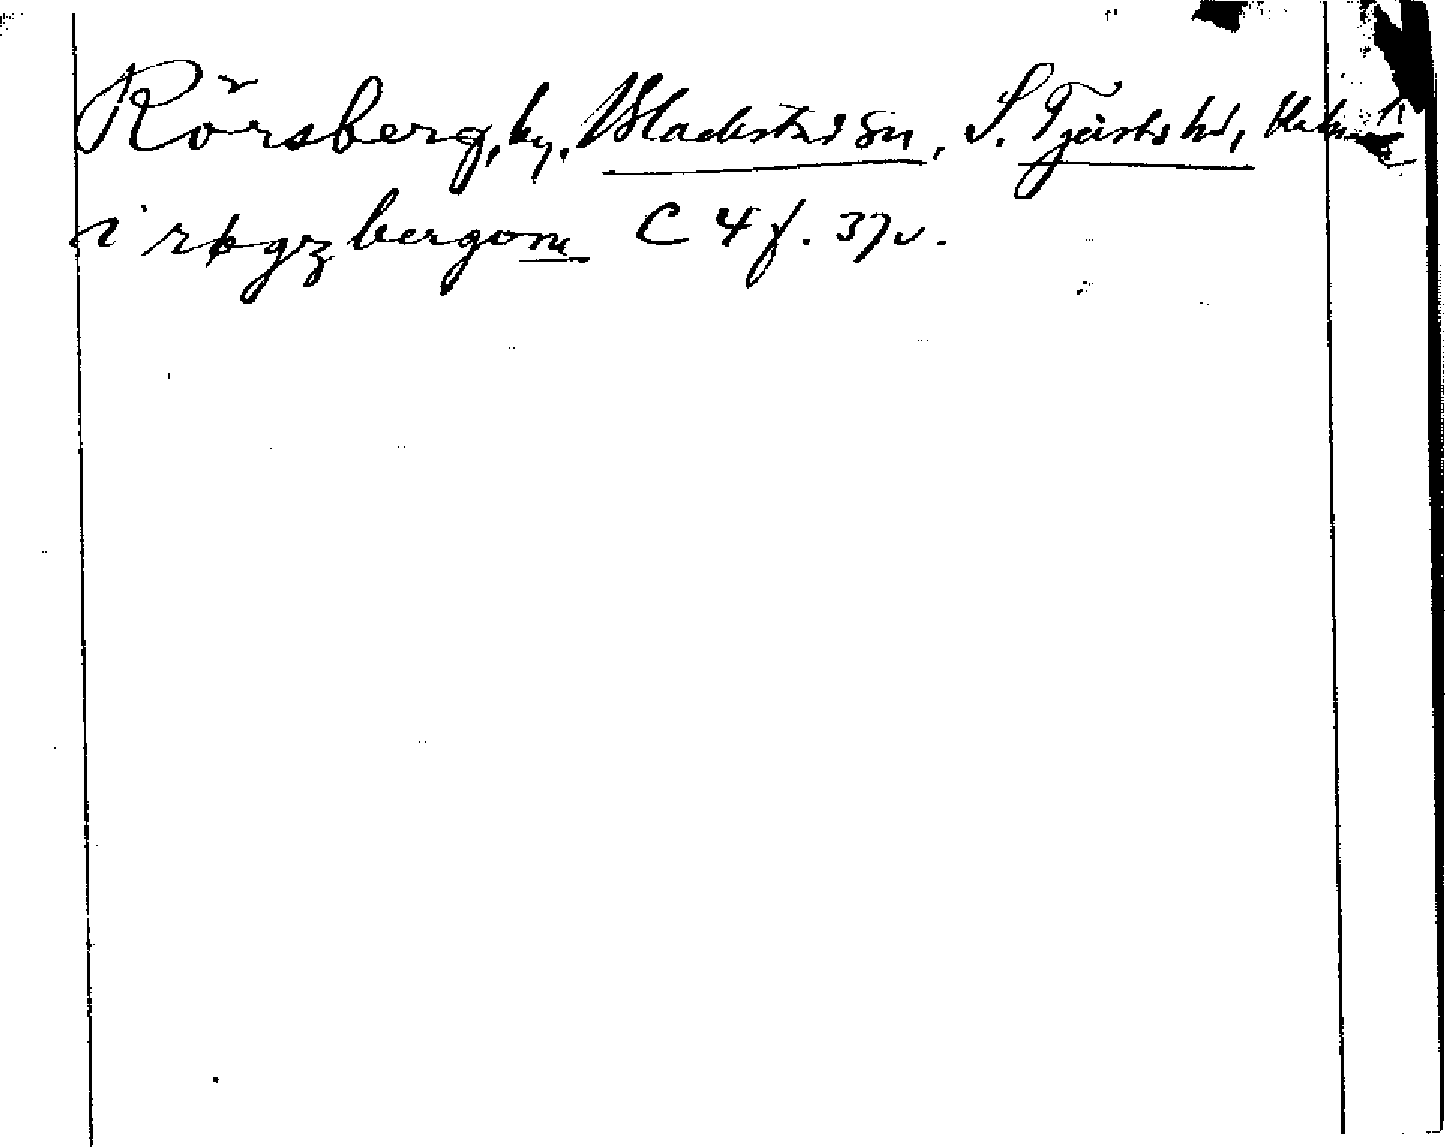 Rörsberg, by, Blackstad sn, S. Tjusts hd, Kalm
i røgzbergom C 4 f. 37v.